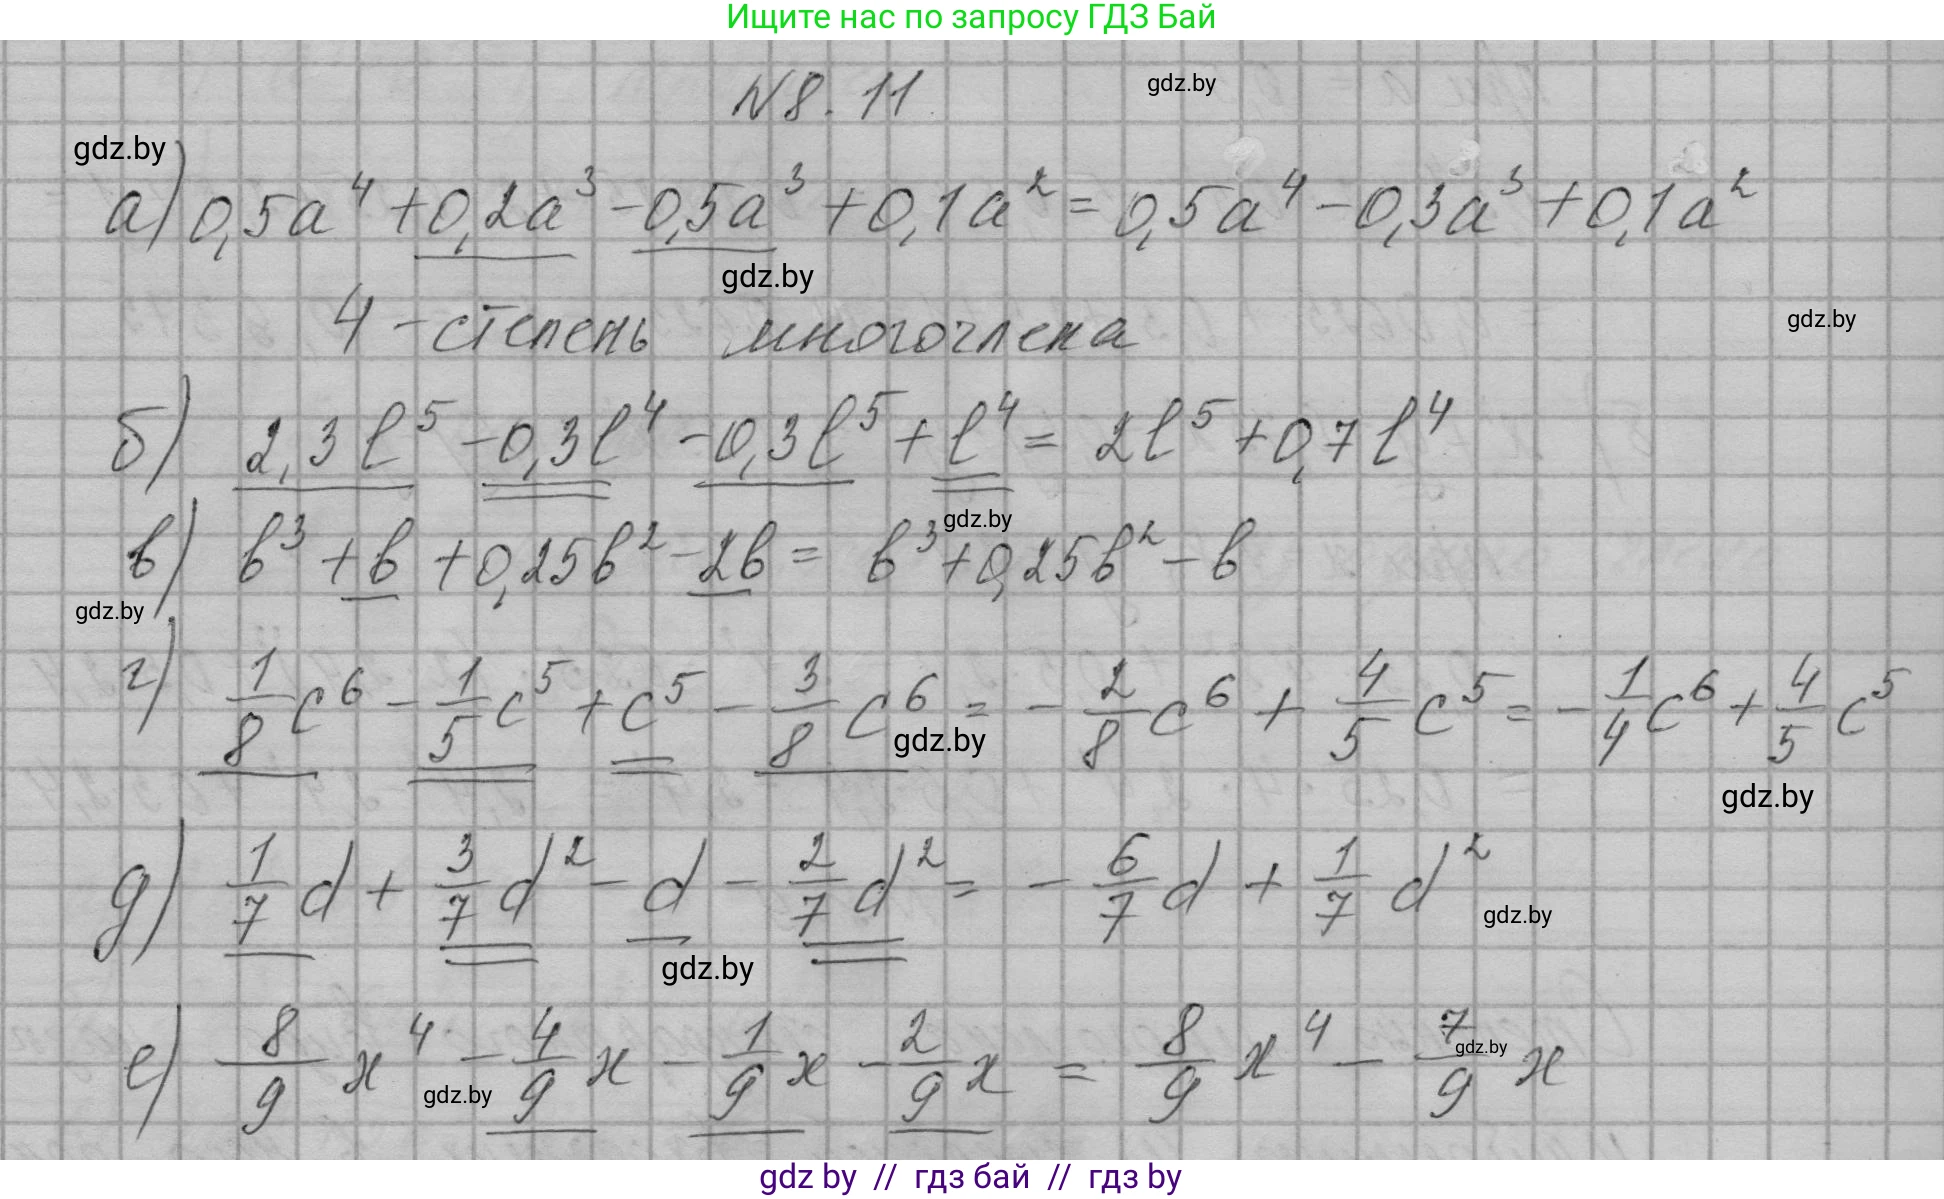 Ищите нас по запросу ГДЗ Бай
N8.11
gdz.by
gdz.by
а) 0,5a⁴ + 0,2a³ - 0,5a³ + 0,1a² = 0,5a⁴ - 0,3a³ + 0,1a²
gdz.by
4 - степень многочлена
gdz.by
б) 2,3l⁵ - 0,3l⁴ - 0,3l⁵ + l⁴ = 2l⁵ + 0,7l⁴
gdz.by
в) b³ + b + 0,25b² - 2b = b³ + 0,25b² - b
gdz.by
г) 1/8 c⁶ - 1/5 c⁵ + c⁵ - 3/8 c⁶ = - 2/8 c⁶ + 4/5 c⁵ = - 1/4 c⁶ + 4/5 c⁵
gdz.by
gdz.by
д) 1/7 d + 3/7 d² - d - 2/7 d² = - 6/7 d + 1/7 d²
gdz.by
gdz.by
е) 8/9 x⁴ - 4/9 x - 1/9 x - 2/9 x = 8/9 x⁴ - 7/9 x
gdz.by
gdz.by
gdz by // гдз бай // гдз by